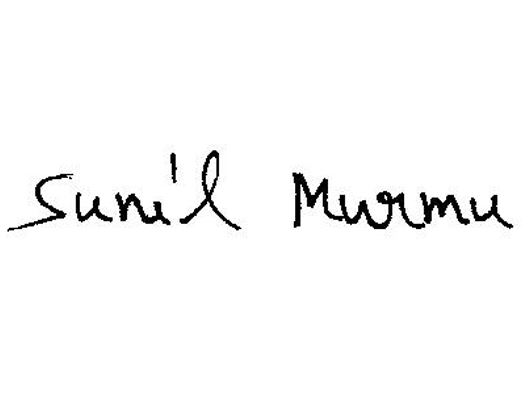 Sunil Murmu